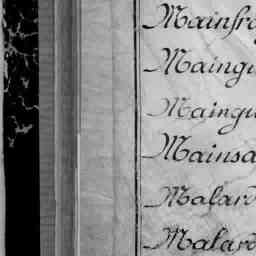 Mainfro
Maingu
Maingu
Mainsa
Malard
Malard